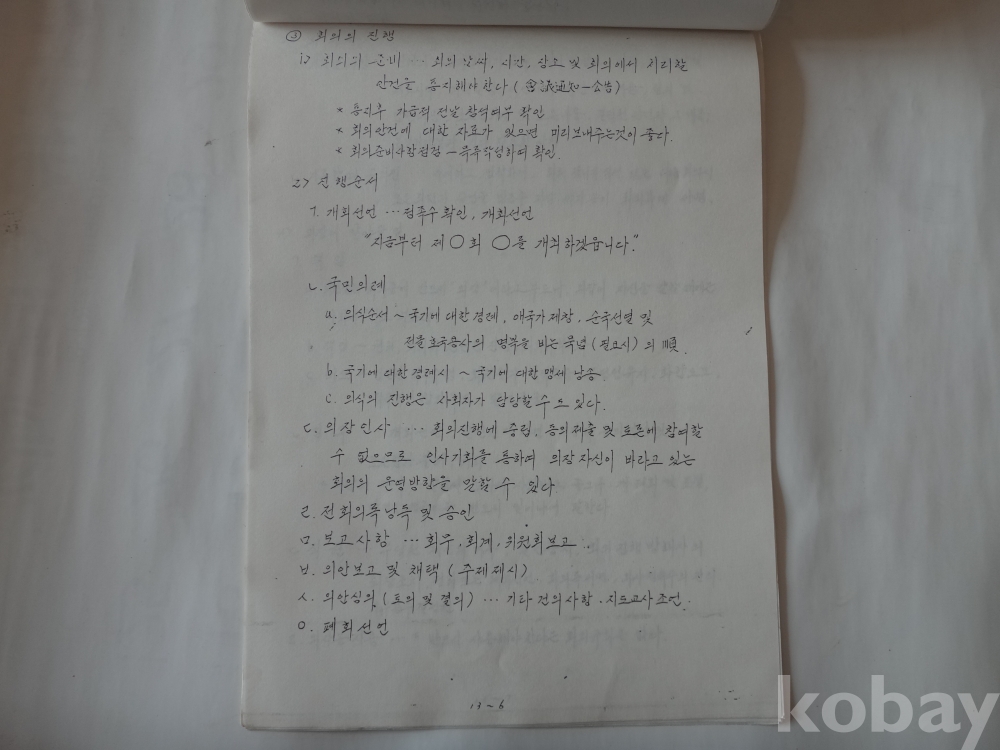 ③ 회의의 진행
1> 회의의 준비 … 회의 날짜, 시간, 장소 및 회의에서 처리할
안건을 통지해야 한다 (會議通知-公告)
* 통지후 가급적 전날 참석여부 확인
* 회의안건에 대한 자료가 있으면 미리보내주는것이 좋다.
* 회의준비사항점검 - 목록작성하여 확인.
2> 진행순서
ㄱ. 개회선언 … 정족수확인, 개회선언
"지금부터 제○회 ○를 개최하겠읍니다."
ㄴ. 국민의례
a. 의식순서 ~ 국기에 대한 경례, 애국가제창, 순국선열 및
전몰호국용사의 명복을 비는 묵념 (필요시) 의 順.
b. 국기에 대한 경례시 ~ 국기에 대한 맹세 낭송
c. 의식의 진행은 사회자가 담당할 수도 있다.
ㄷ. 의장인사 … 회의진행에 중립, 동의제출 및 토론에 참여할
수 없으므로 인사기회를 통하여 의장자신이 바라고 있는
회의의 운영방향을 말할 수 있다.
ㄹ. 전회의록낭독 및 승인
ㅁ. 보고사항 … 회무, 회계, 위원회보고 ..
ㅂ. 의안보고 및 채택 (주제제시)
ㅅ. 의안심의 (토의 및 결의) … 기타 건의사항 · 지도교사조언.
ㅇ. 폐회선언
13~6
kobay